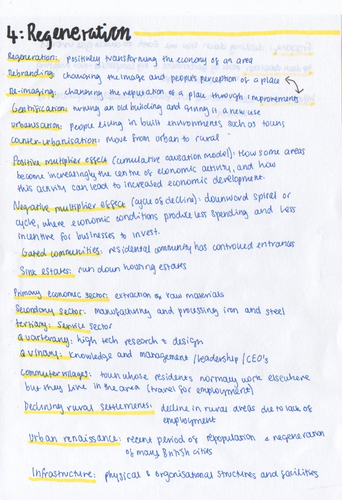 4: Regeneration
Regeneration: positively transforming the economy of an area
Rebranding: changing the image and people's perception of a place
Re-imaging: changing the reputation of a place through improvements
Gentrification: turning an old building and giving it a new use
urbanisation: People living in built environments such as towns
counter-urbanisation: move from urban to rural
Positive multiplier effect (cumulative causation model): How some areas
become increasingly the centre of economic activity, and how
this activity can lead to increased economic development.
Negative multiplier effect (cycle of decline): downward spiral or
cycle, where economic conditions produce less spending and less
incentive for businesses to invest.
Gated communities: residential community has controlled entrances
Sink estates: run down housing estates
Primary economic sector: extraction of raw materials
Secondary sector: manufacturing and processing iron and steel
tertiary: Service sector
quarternary: high tech research & design
quinary: knowledge and management /leadership /CEO's
commuter villages: town whose residents normally work elsewhere
but they live in the area (travel for employment)
Declining rural settlements: decline in rural areas due to lack of
employment
Urban renaissance: recent period of repopulation & regeneration
of many British cities
Infrastructure: physical & organisational structures and facilities